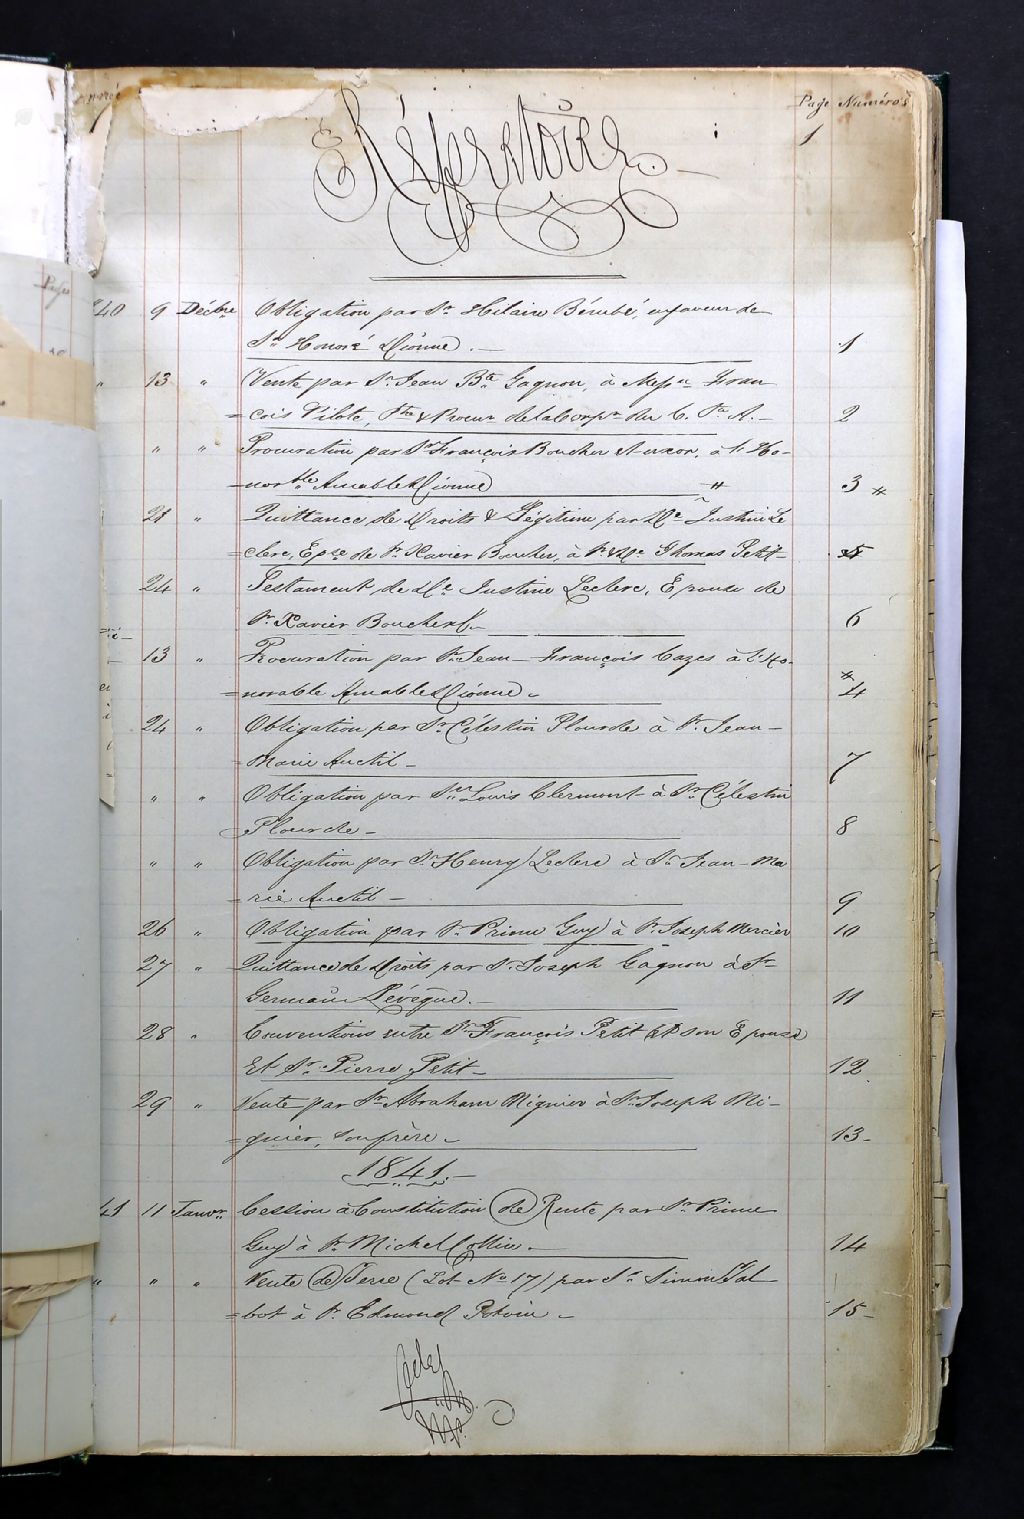 Page Numéros
1
Répertoire
Page
40 9 Décbre Obligation par Sr Hilaire Bérubé, en faveur de
Sr Honoré Dionne. 1
" 13 " Vente par Sr Jean Bte Gagnon, à Messr Fran
=cois Pilote, Ptre & Procur de la Corpn du C. Ste A. 2
" " Procuration par Sr François Boucher et uxor. à l'Ho-
=norble Amable Dionne # 3 #
21 " Quittance de Droits & Légitime par De Justine Le
=clerc, Epse de Sr Xavier Boucher, à Sr & De Thomas Petit 5
24 " Testament de De Justine Leclerc, Epouse de
Sr Xavier Boucher 6
13 " Procuration par Sr Jean-François Cazes à l'Ho-
=norable Amable Dionne # 4
24 " Obligation par Sr Célestin Plourde à Sr Jean-
=Marie Anctil 7
" " Obligation par Sr Louis Clermont à Sr Célestin
Plourde 8
" " Obligation par Sr Henry Leclerc à Sr Jean-Ma
=rie Anctil 9
26 " Obligation par Sr Prime Guy à Sr Joseph Mercier 10
27 " Quittance de Droits par Sr Joseph Gagnon à Sr
Germain Lévêque. 11
28 " Conventions entre Sr François Petit et son Epouse
Et Sr Pierre Petit 12
29 " Vente par Sr Abraham Mignier à Sr Joseph Mi-
=gnier, son frère 13
1841.
41 11 Janvr Cession à Constitution de Rente par Sr Prime
Guy à Sr Michel Collin. 14
" " " Vente de Terre (Lot No 17) par Sr Simon Tal
=bot à Sr Edmond Potvin 15